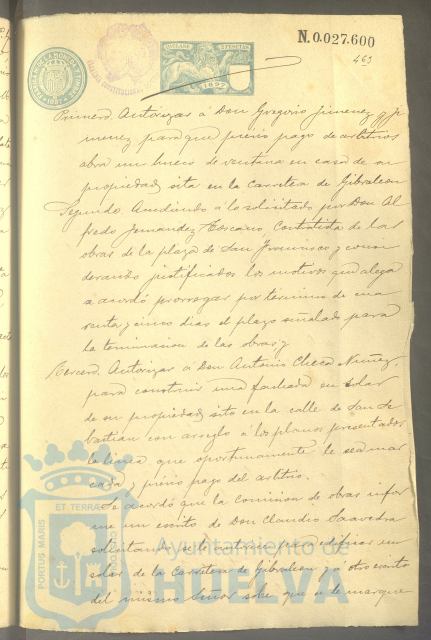 N.0.027.600
463
1897
Primero. Autorizar á Don Gregorio Jimenez y Ji
menez para que previo pago de arbitrios
abra un hueco de ventana en casa de su
propiedad sita en la Carretera de Gibraleon
Segundo. Accediendo á lo solicitado por Don Al
fredo Fernandez Toscano, Contratista de las
obras de la plaza de San Francisco y consi
derando justificados los motivos que alega
se acordó prorrogar por término de cua
renta y cinco dias el plazo señalado para
la terminacion de las obras y
Tercero. Autorizar á Don Antonio Checa Nuñez,
para construir una fachada en solar
de su propiedad sito en la calle de San Se
bastian con arreglo á los planos presentados
la linea que oportunamente le sea mar
cada y previo pago del arbitrio.
Se acordó que la Comision de obras infor
me un escrito de Don Claudio Saavedra
solicitando se le autorice para edificar un
solar de la Carretera de Gibraleon y á otro escrito
del mismo Señor sobre que se le marque
PORTUS MARIS
ET TERRAE
Ayuntamiento de
HUELVA